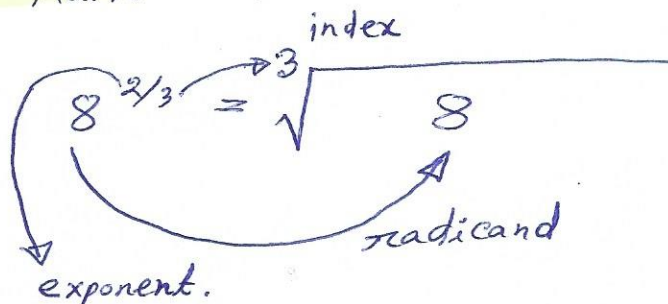 index
8^2/3 = 3√8
radicand
exponent.